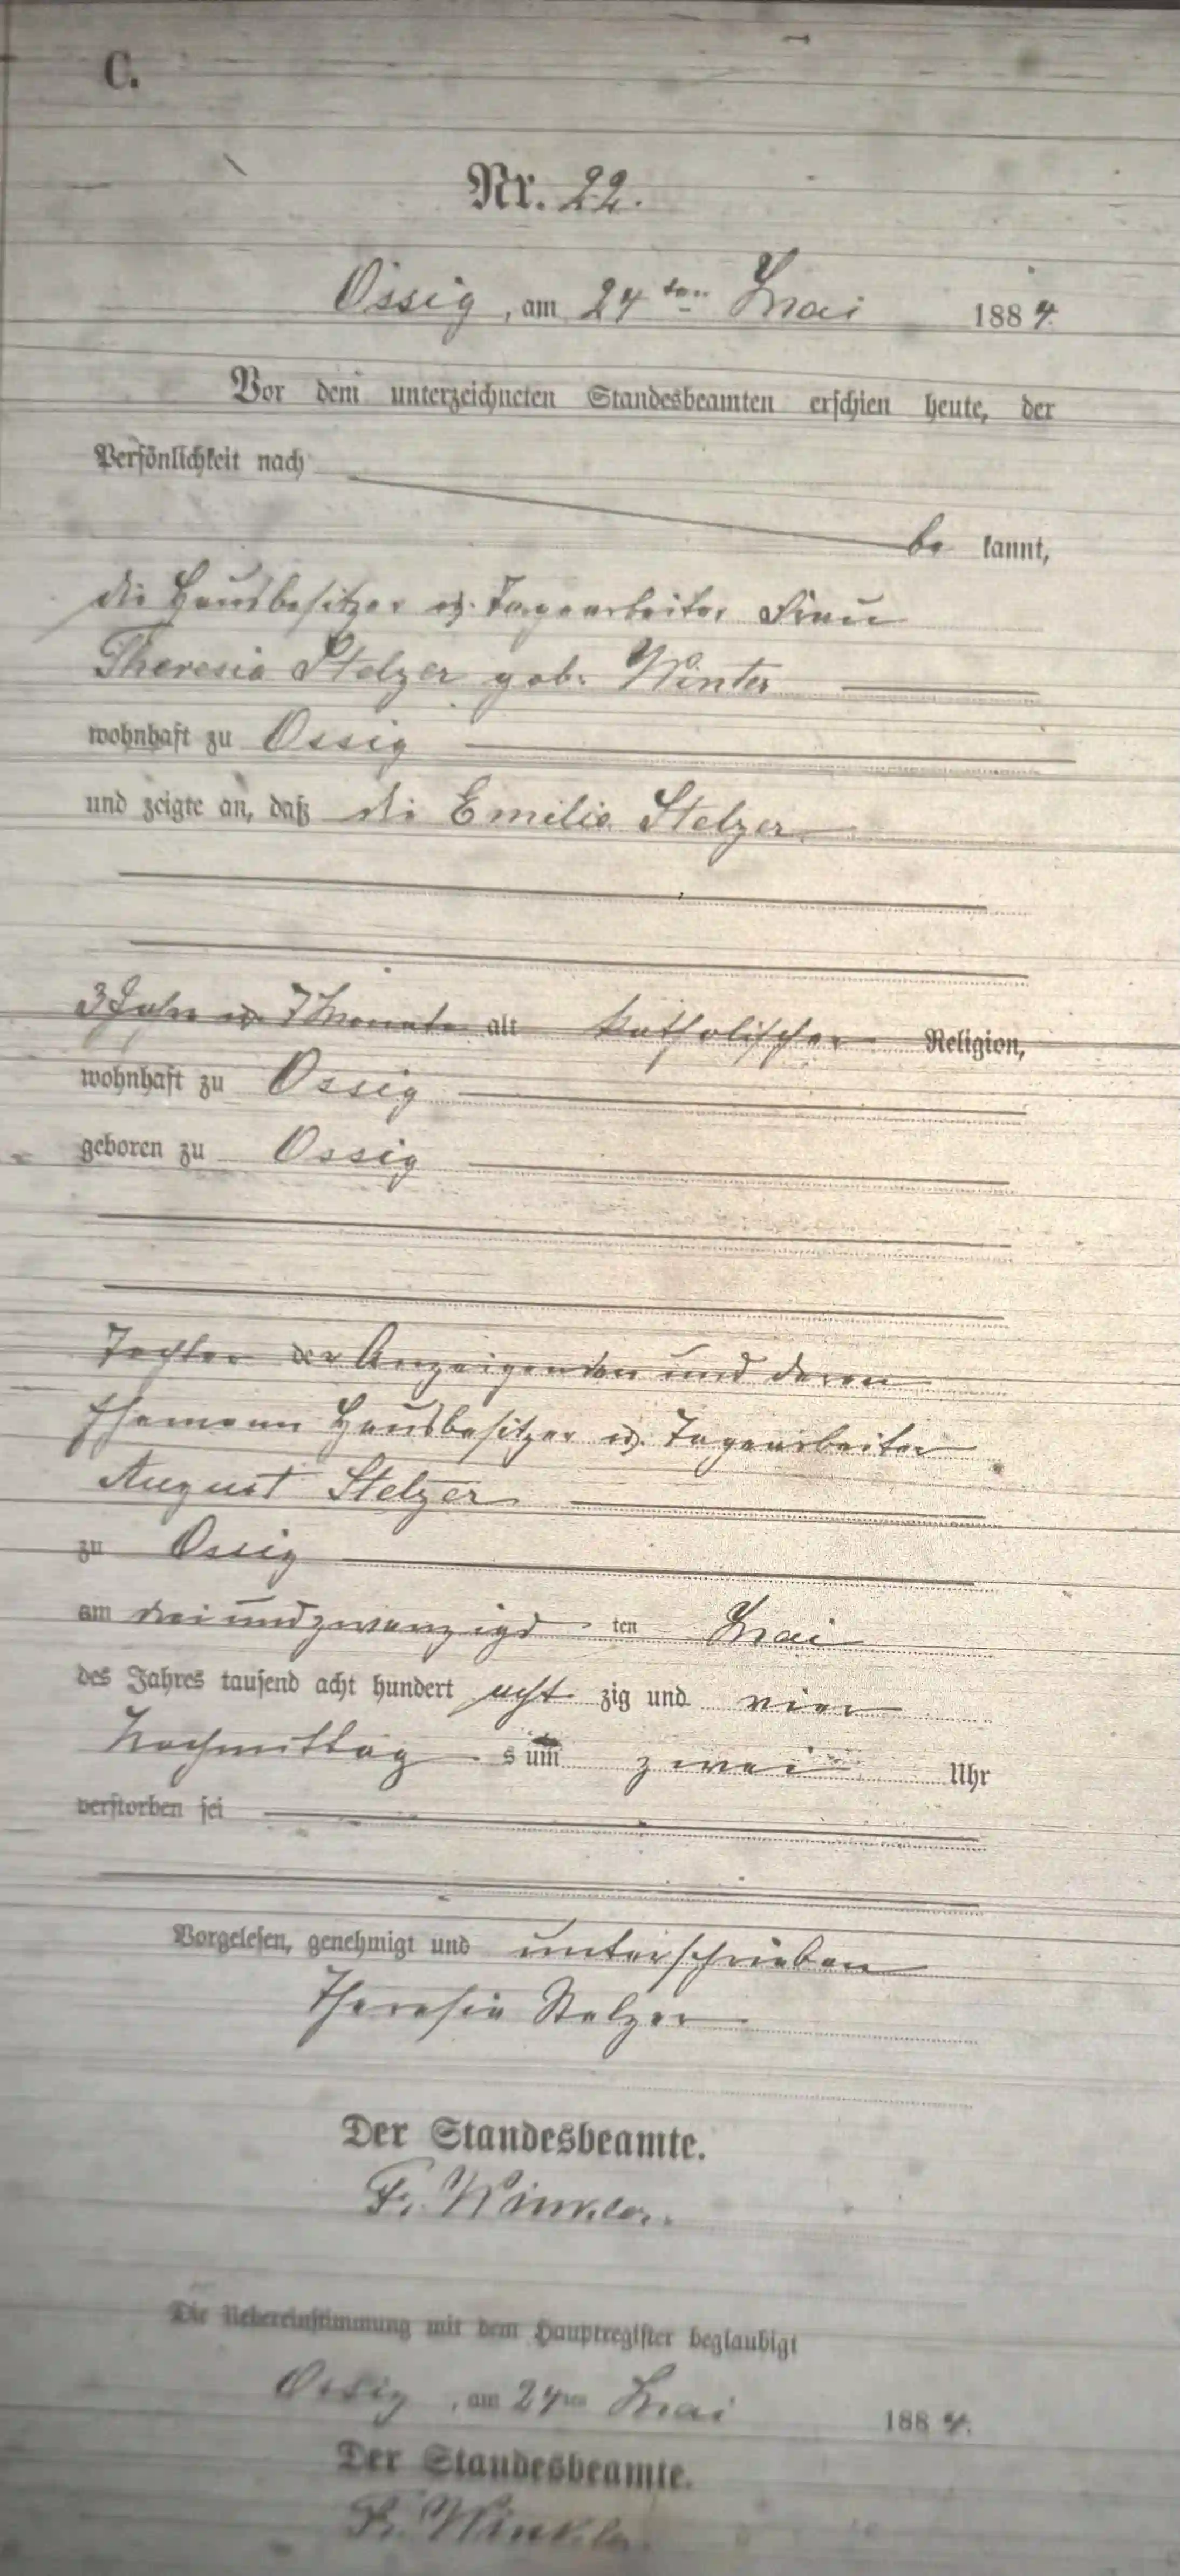 C.
Nr. 22.
Ossig, am 24ten Mai 1884.
Vor dem unterzeichneten Standesbeamten erschien heute, der
Persönlichkeit nach
be kannt,
die Hausbesitzer u. Tagearbeiter Frau
Theresia Stelzer geb. Winter
wohnhaft zu Ossig
und zeigte an, daß die Emilie Stelzer
3 Jahr u. 7 Monate alt katholischer Religion,
wohnhaft zu Ossig
geboren zu Ossig
Tochter der Anzeigenden und deren
Ehemann Hausbesitzer u. Tagearbeiter
August Stelzer
zu Ossig
am dreiundzwanzigs ten Mai
des Jahres tausend acht hundert acht zig und vier
Nachmittag s um zwei Uhr
verstorben sei
Vorgelesen, genehmigt und unterschrieben
Theresia Stelzer
Der Standesbeamte.
F. Winkler.
Die Uebereinstimmung mit dem Hauptregister beglaubigt
Ossig, am 24ten Mai 1884.
Der Standesbeamte.
F. Winkler.